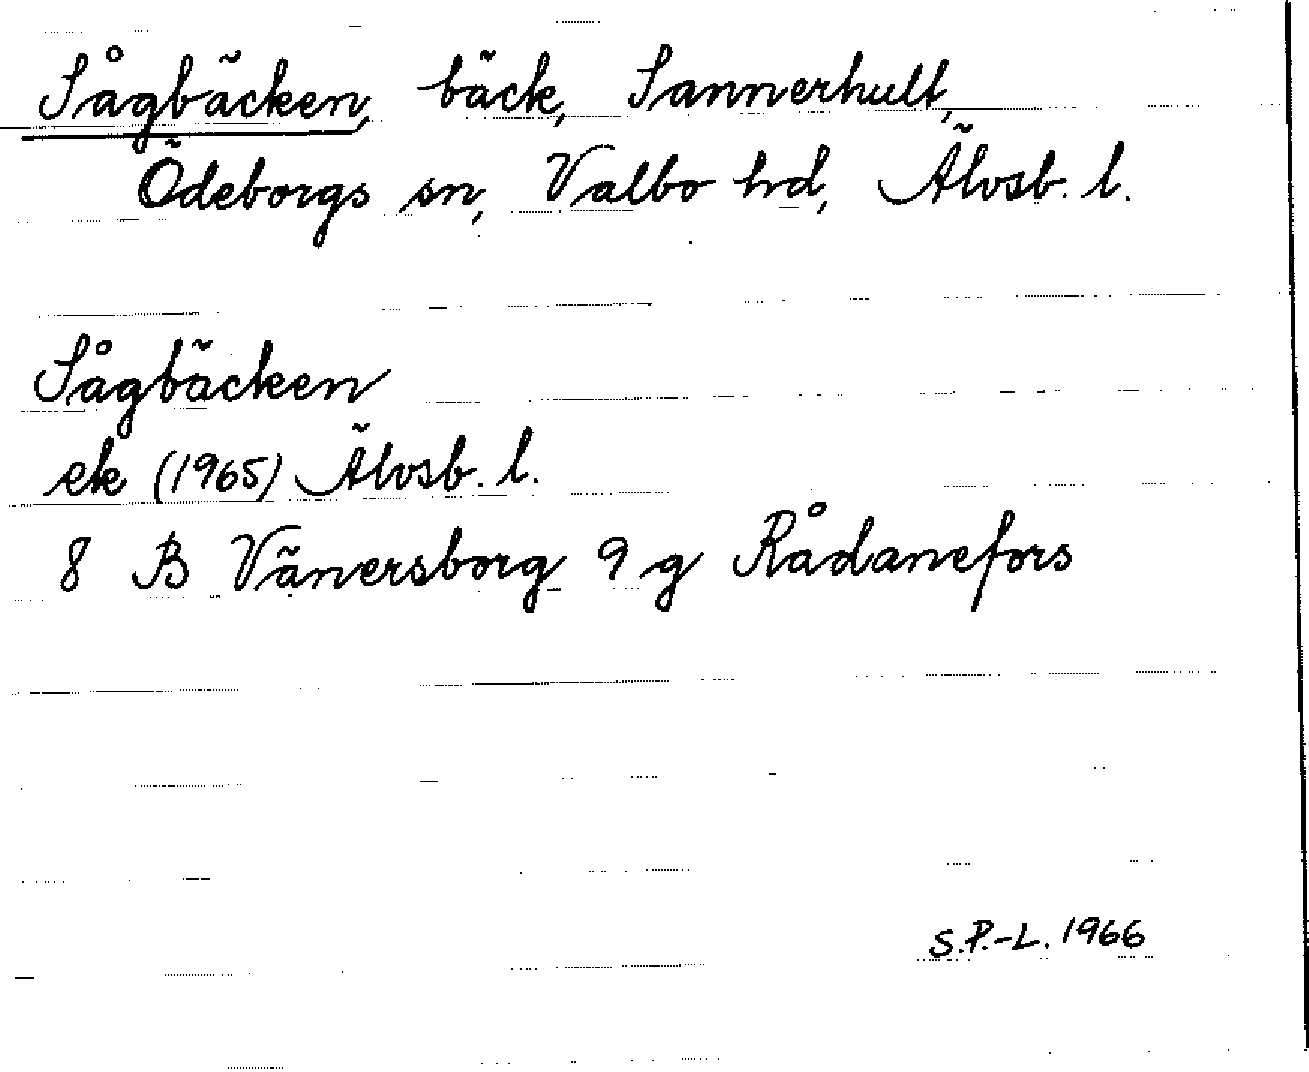 Sågbäcken, bäck, Sannerhult,
Ödeborgs sn, Valbo hd, Älvsb. l.
Sågbäcken
ek (1965) Älvsb. l.
8 B Vänersborg 9 g Rådanefors
S.P.-L. 1966